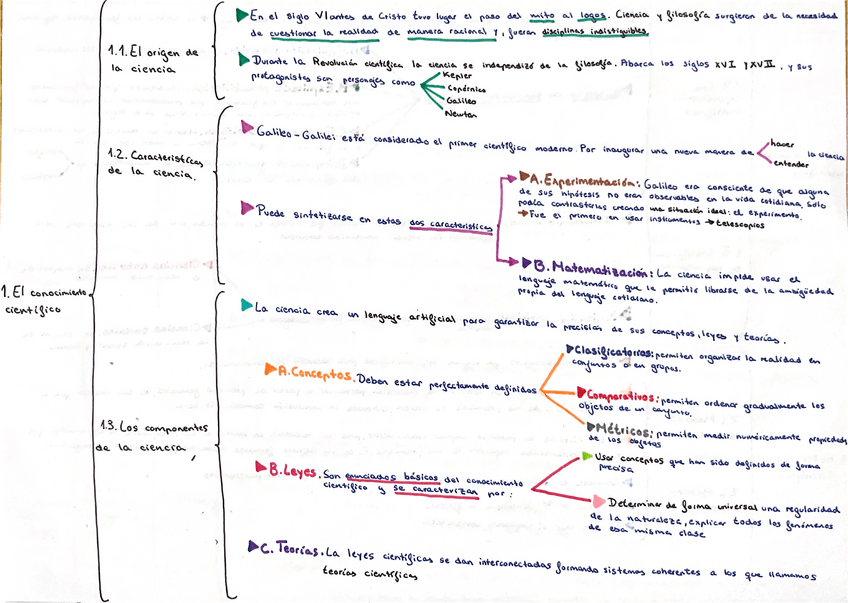 En el siglo VI antes de Cristo tuvo lugar el paso del mito al logos. Ciencia y filosofía surgieron de la necesidad
de cuestionar la realidad de manera racional y, fueran disciplinas indistiguibles.
1.1. El origen de
la ciencia
Durante la Revolución científica la ciencia se independizó de la filosofía. Abarca los siglos XVI y XVII, y sus
protagonistas son personajes como
Kepler
Copérnico
Galileo
Newton
1.2. Características
de la ciencia.
Galileo-Galilei está considerado el primer científico moderno. Por inaugurar una nueva manera de
hacer
entender
la ciencia
Puede sintetizarse en estas dos características
A. Experimentación: Galileo era consciente de que alguna
de sus hipótesis no eran observables en la vida cotidiana, solo
podía contrastarlas creando una situación ideal: el experimento.
Fue el primero en usar instrumentos → telescopios
B. Matematización: La ciencia impide usar el
lenguaje matemático que le permitir librarse de la ambigüedad
propia del lenguaje cotidiano.
1. El conocimiento
científico
1.3. Los componentes
de la ciencia,
La ciencia crea un lenguaje artificial para garantizar la precisión de sus conceptos, leyes y teorías.
A. Conceptos. Deben estar perfectamente definidos
Clasificatorios: permiten organizar la realidad en
conjuntos o en grupos.
Comparativos: permiten ordenar gradualmente los
objetos de un conjunto.
Métricos: permiten medir numéricamente propiedades
de los objetos
B. Leyes. Son enunciados básicos del conocimiento
científico y se caracterizan por:
Usar conceptos que han sido definidos de forma
precisa
Determinar de forma universal una regularidad
de la naturaleza, explicar todos los fenómenos
de esa misma clase
C. Teorías. La leyes científicas se dan interconectadas formando sistemas coherentes a los que llamamos
teorías científicas